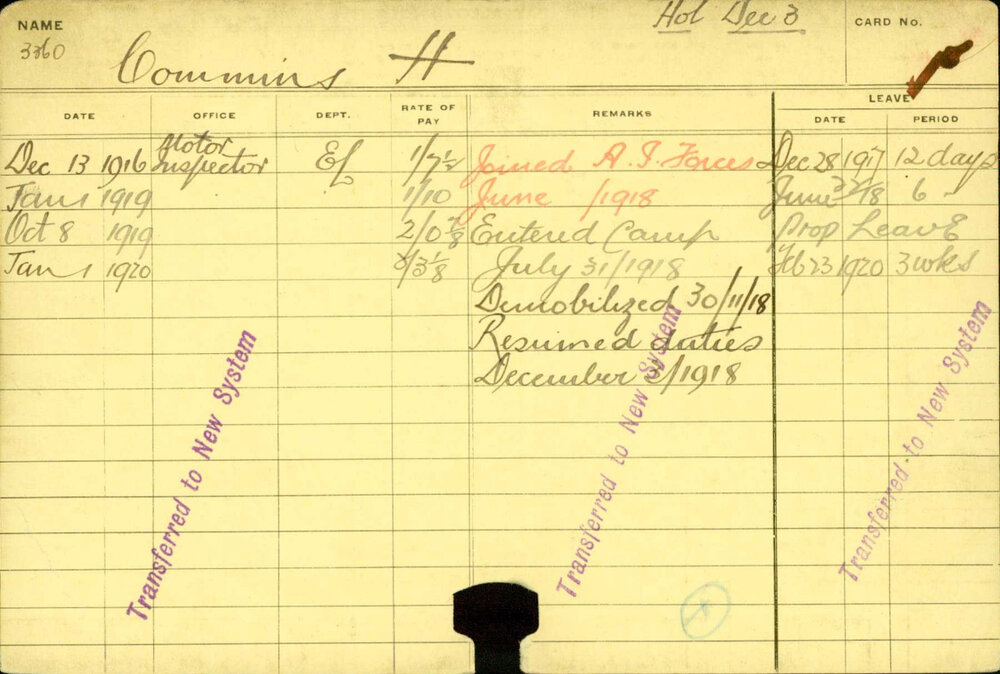 NAME
3360
Commins H
Hol Dec 3
CARD No.
DATE OFFICE DEPT. RATE OF PAY REMARKS LEAVE
DATE PERIOD
Dec 13 1916 Motor Inspector El 1/7½ Joined A. I. Forces Dec 28 1917 12 days
Jan 1 1919 1/10 June /1918 June 18 6
Oct 8 1919 2/0⅞ Entered Camp Prop Leave
Jan 1 1920 /3⅛ July 31/1918 Feb 23 1920 3 wks
Demobilized 30/11/18
Resumed duties
December /1918
Transferred to New System
Transferred to New System
Transferred to New System